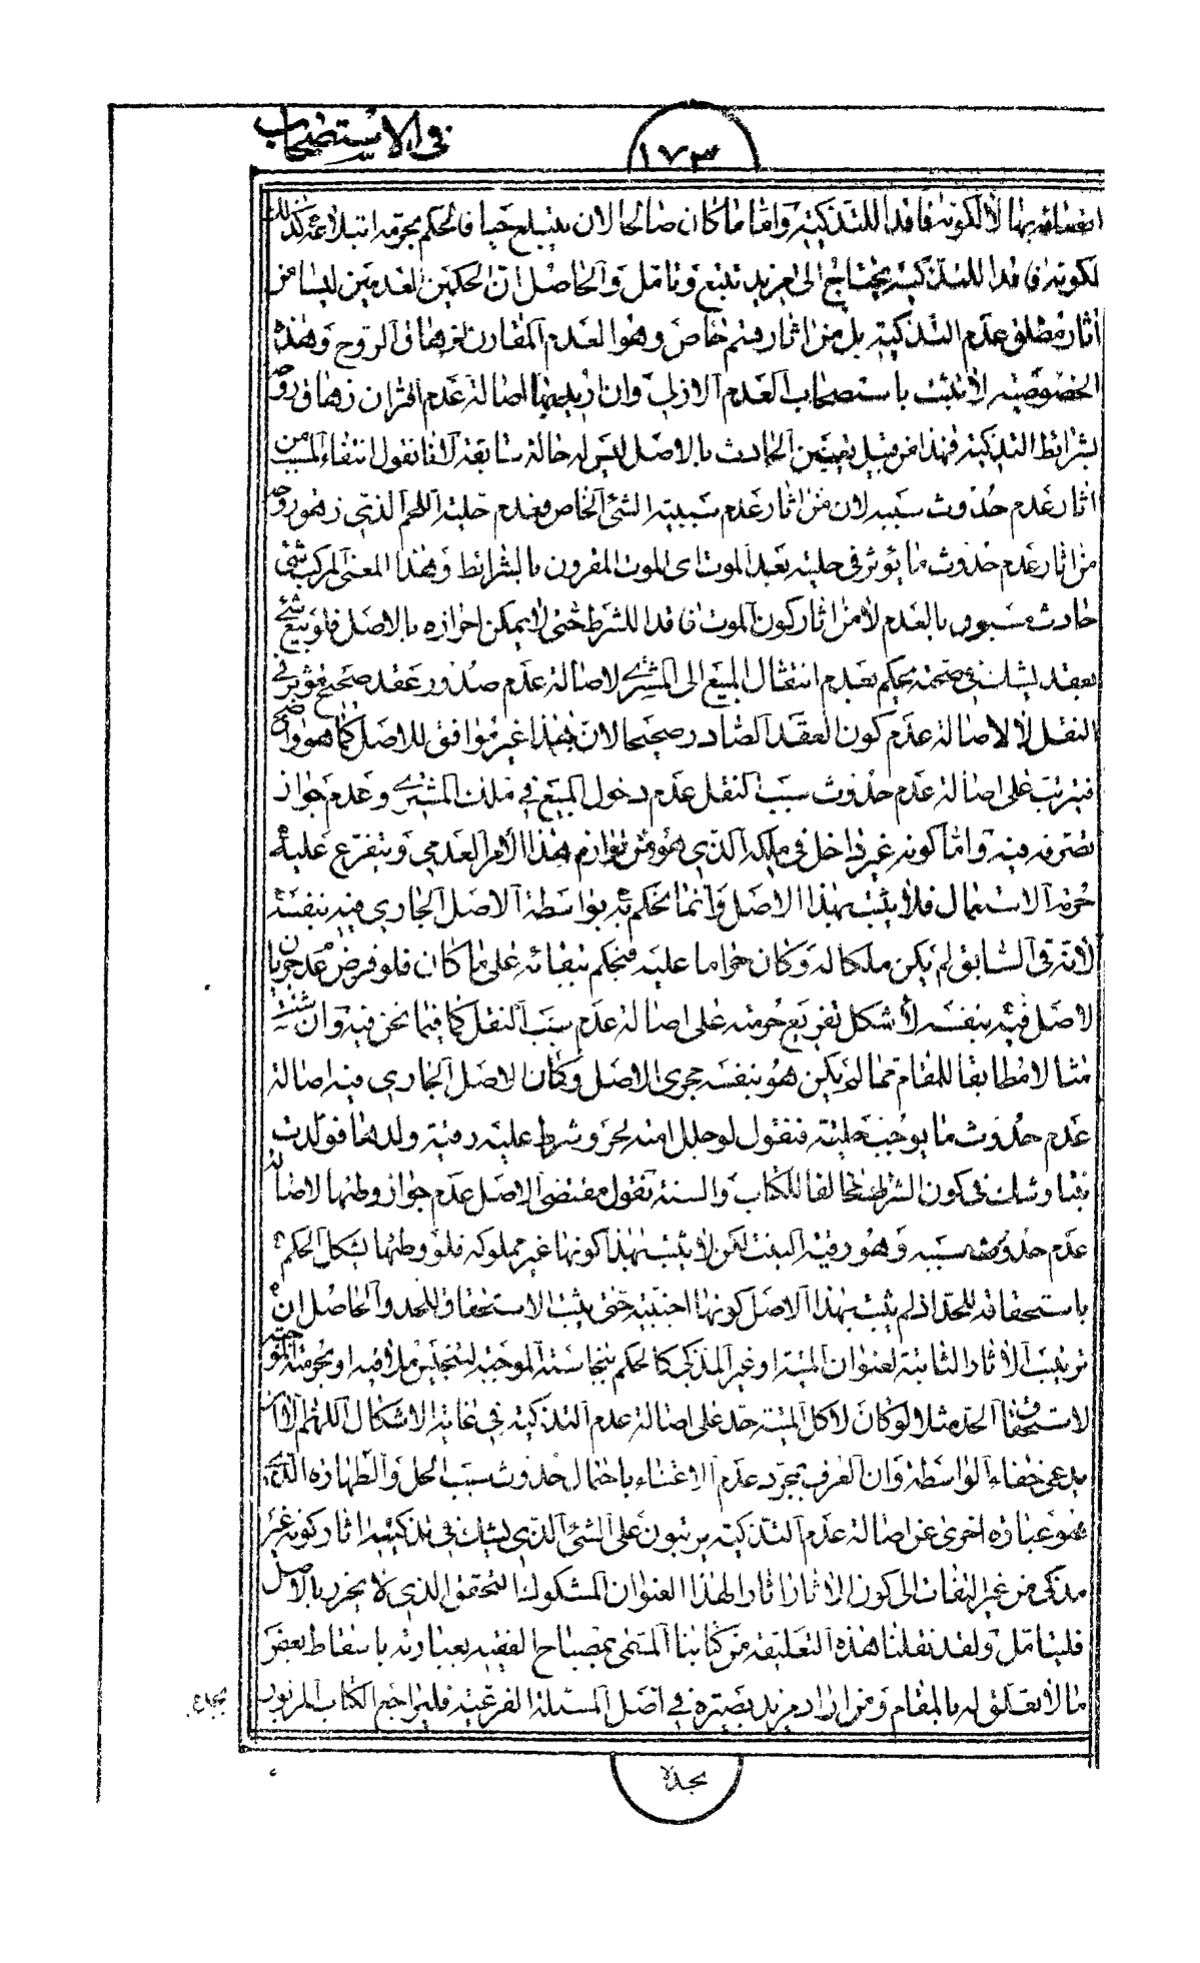 في الاستصحاب
١٧٣
انصافه بها لا لكونه فاقدا للتذكية واما ما كان صالحا لان يبتلع حيا فالحكم بحرمة ابتلاعه كذلك
لكونه فاقدا للتذكية يحتاج الى مزيد تتبع وتامل والحاصل ان الحكمين العدميين ليسا من
اثار مطلق عدم التذكية بل من اثار قسم خاص وهو العدم المقارن لزهاق الروح وهذه
الخصوصية لا تثبت باستصحاب العدم الازلي وان اريد بها اصالة عدم اقتران زهاق روحه
بشرائط التذكية فهذا من قبيل تعيين الحادث بالاصل ليس له حالة سابقة لانا نقول انتفاء المسبب من
اثار عدم حدوث سببه لان من اثار عدم سببية الشئ الخاص فعدم حلية اللحم الذي زهق روحه
من اثار عدم حدوث ما يؤثر في حليته بعد الموت اى الموت المقرون بالشرائط وهذا المعنى المركب شئ
حادث مسبوق بالعدم لا من اثار كون الموت فاقدا للشرط حتى لا يمكن احرازه بالاصل فلو بيع شئ
بعقد يشك في صحته يحكم بعدم انتقال المبيع الى المشتري لاصالة عدم صدور عقد صحيح مؤثر في
النقل لا لاصالة عدم كون العقد الصادر صحيحا لان هذا غير موافق للاصل كما هو واضح
فيترتب على اصالة عدم حدوث سبب النقل عدم دخول المبيع في ملك المشتري وعدم جواز
تصرفه فيه واما كونه غير داخل في ملكه الذي هو من لوازم هذا الامر العدمي ويتفرع عليه
حرمة الاستعمال فلا يثبت بهذا الاصل وانما يحكم به بواسطة الاصل الجاري فيه بنفسه
لانه في السابق لم يكن ملكا له وكان حراما عليه فيحكم ببقائه على ما كان فلو فرض عدم جريان
لاصل فيه بنفسه لأشكل تفريع حرمته على اصالة عدم سبب النقل كما فيما نحن فيه وان شئت
مثالا مطابقا للمقام مما لم يكن هو بنفسه مجرى الاصل وكان الاصل الجاري فيه اصالة
عدم حدوث ما يوجب حليته فنقول لو حلل امته لحر وشرط عليه رقية ولدها فولدت
بنتا وشك في كون الشرط مخالفا للكتاب والسنة نقول مقتضى الاصل عدم جواز وطئها لاصالة
عدم حدوث سببه وهو رقية البنت لكن لا يثبت بهذا كونها غير مملوكه فلو وطئها يشكل الحكم
باستحقاقه للحد اذ لم يثبت بهذا الاصل كونها اجنبية حتى يثبت الاستحقاق للحد والحاصل ان
ترتيب الاثار الثابتة لعنوان الميتة او غير المذكى كالحكم بنجاسته الموجبة لتنجيس ملاقيه او بحرمته الموجبة
لاستحقاق الحد مثلا لو كان لاكل الميتة حد على اصالة عدم التذكية في غاية الاشكال اللهم الا ان
يدعى خفاء الواسطة وان العرف بمجرد عدم الاعتناء باحتمال حدوث سبب الحل والطهارة الذي
هو عبارة اخرى عن اصالة عدم التذكية يرتبون على الشئ الذي يشك في تذكيته اثار كونه غير
مذكى من غير التفات الى كون الاثار اثارا لهذا العنوان المشكوك التحقق الذي لا يحرز بالاصل
فليتامل ولقد نقلنا هذه التعليقة من كتابنا المسمى بمصباح الفقيه بعبارته باسقاط بعض
ما لا تعلق له بالمقام ومن اراد مزيد بصيرة في اصل المسئلة الفرعية فليراجع الكتاب المزبور